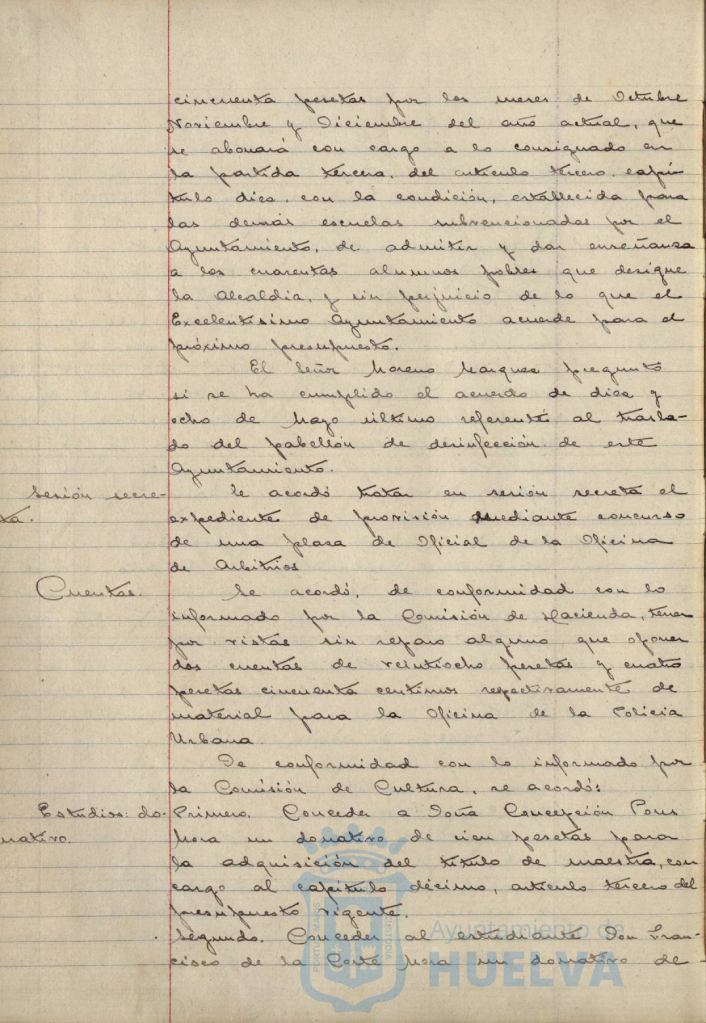 cincuenta pesetas por los meses de Octubre
Noviembre y Diciembre del año actual, que
se abonará con cargo a lo consignado en
la partida tercera, del artículo tercero, capí-
tulo diez, con la condición, establecida para
las demás escuelas subvencionadas por el
Ayuntamiento, de admitir y dar enseñanza
a los cuarentas alumnos pobres que designe
la Alcaldia, y sin perjuicio de lo que el
Excelentisimo Ayuntamiento acuerde para el
próximo presupuesto.
El Señor Moreno Marquez preguntó
si se ha cumplido el acuerdo de diez y
ocho de Mayo último referente al trasla-
do del pabellón de desinfección de este
Ayuntamiento.
Sesión secre-
ta.
Se acordó tratar en sesión secreta el
expediente de provisión mediante concurso
de una plaza de Oficial de la Oficina
de Arbitrios
Cuentas.
Se acordó, de conformidad con lo
informado por la Comisión de Hacienda, tener
por vistas sin reparo alguno que oponer
dos cuentas de veintiocho pesetas y cuatro
pesetas cincuenta centimos repectivamente de
material para la Oficina de la Policia
Urbana.
De conformidad con lo informado por
la Comisión de Cultura, se acordó:
Estudios: do-
nativo.
Primero. Conceder a Doña Concepción Pous
Mora un donativo de cien pesetas para
la adquisición del titulo de maestra, con
cargo al capitulo décimo, articulo tercero del
presupuesto vigente.
Segundo. Conceder al estudiante Don Fran-
cisco de la Corte Mora un donativo de
Ayuntamiento de
HUELVA